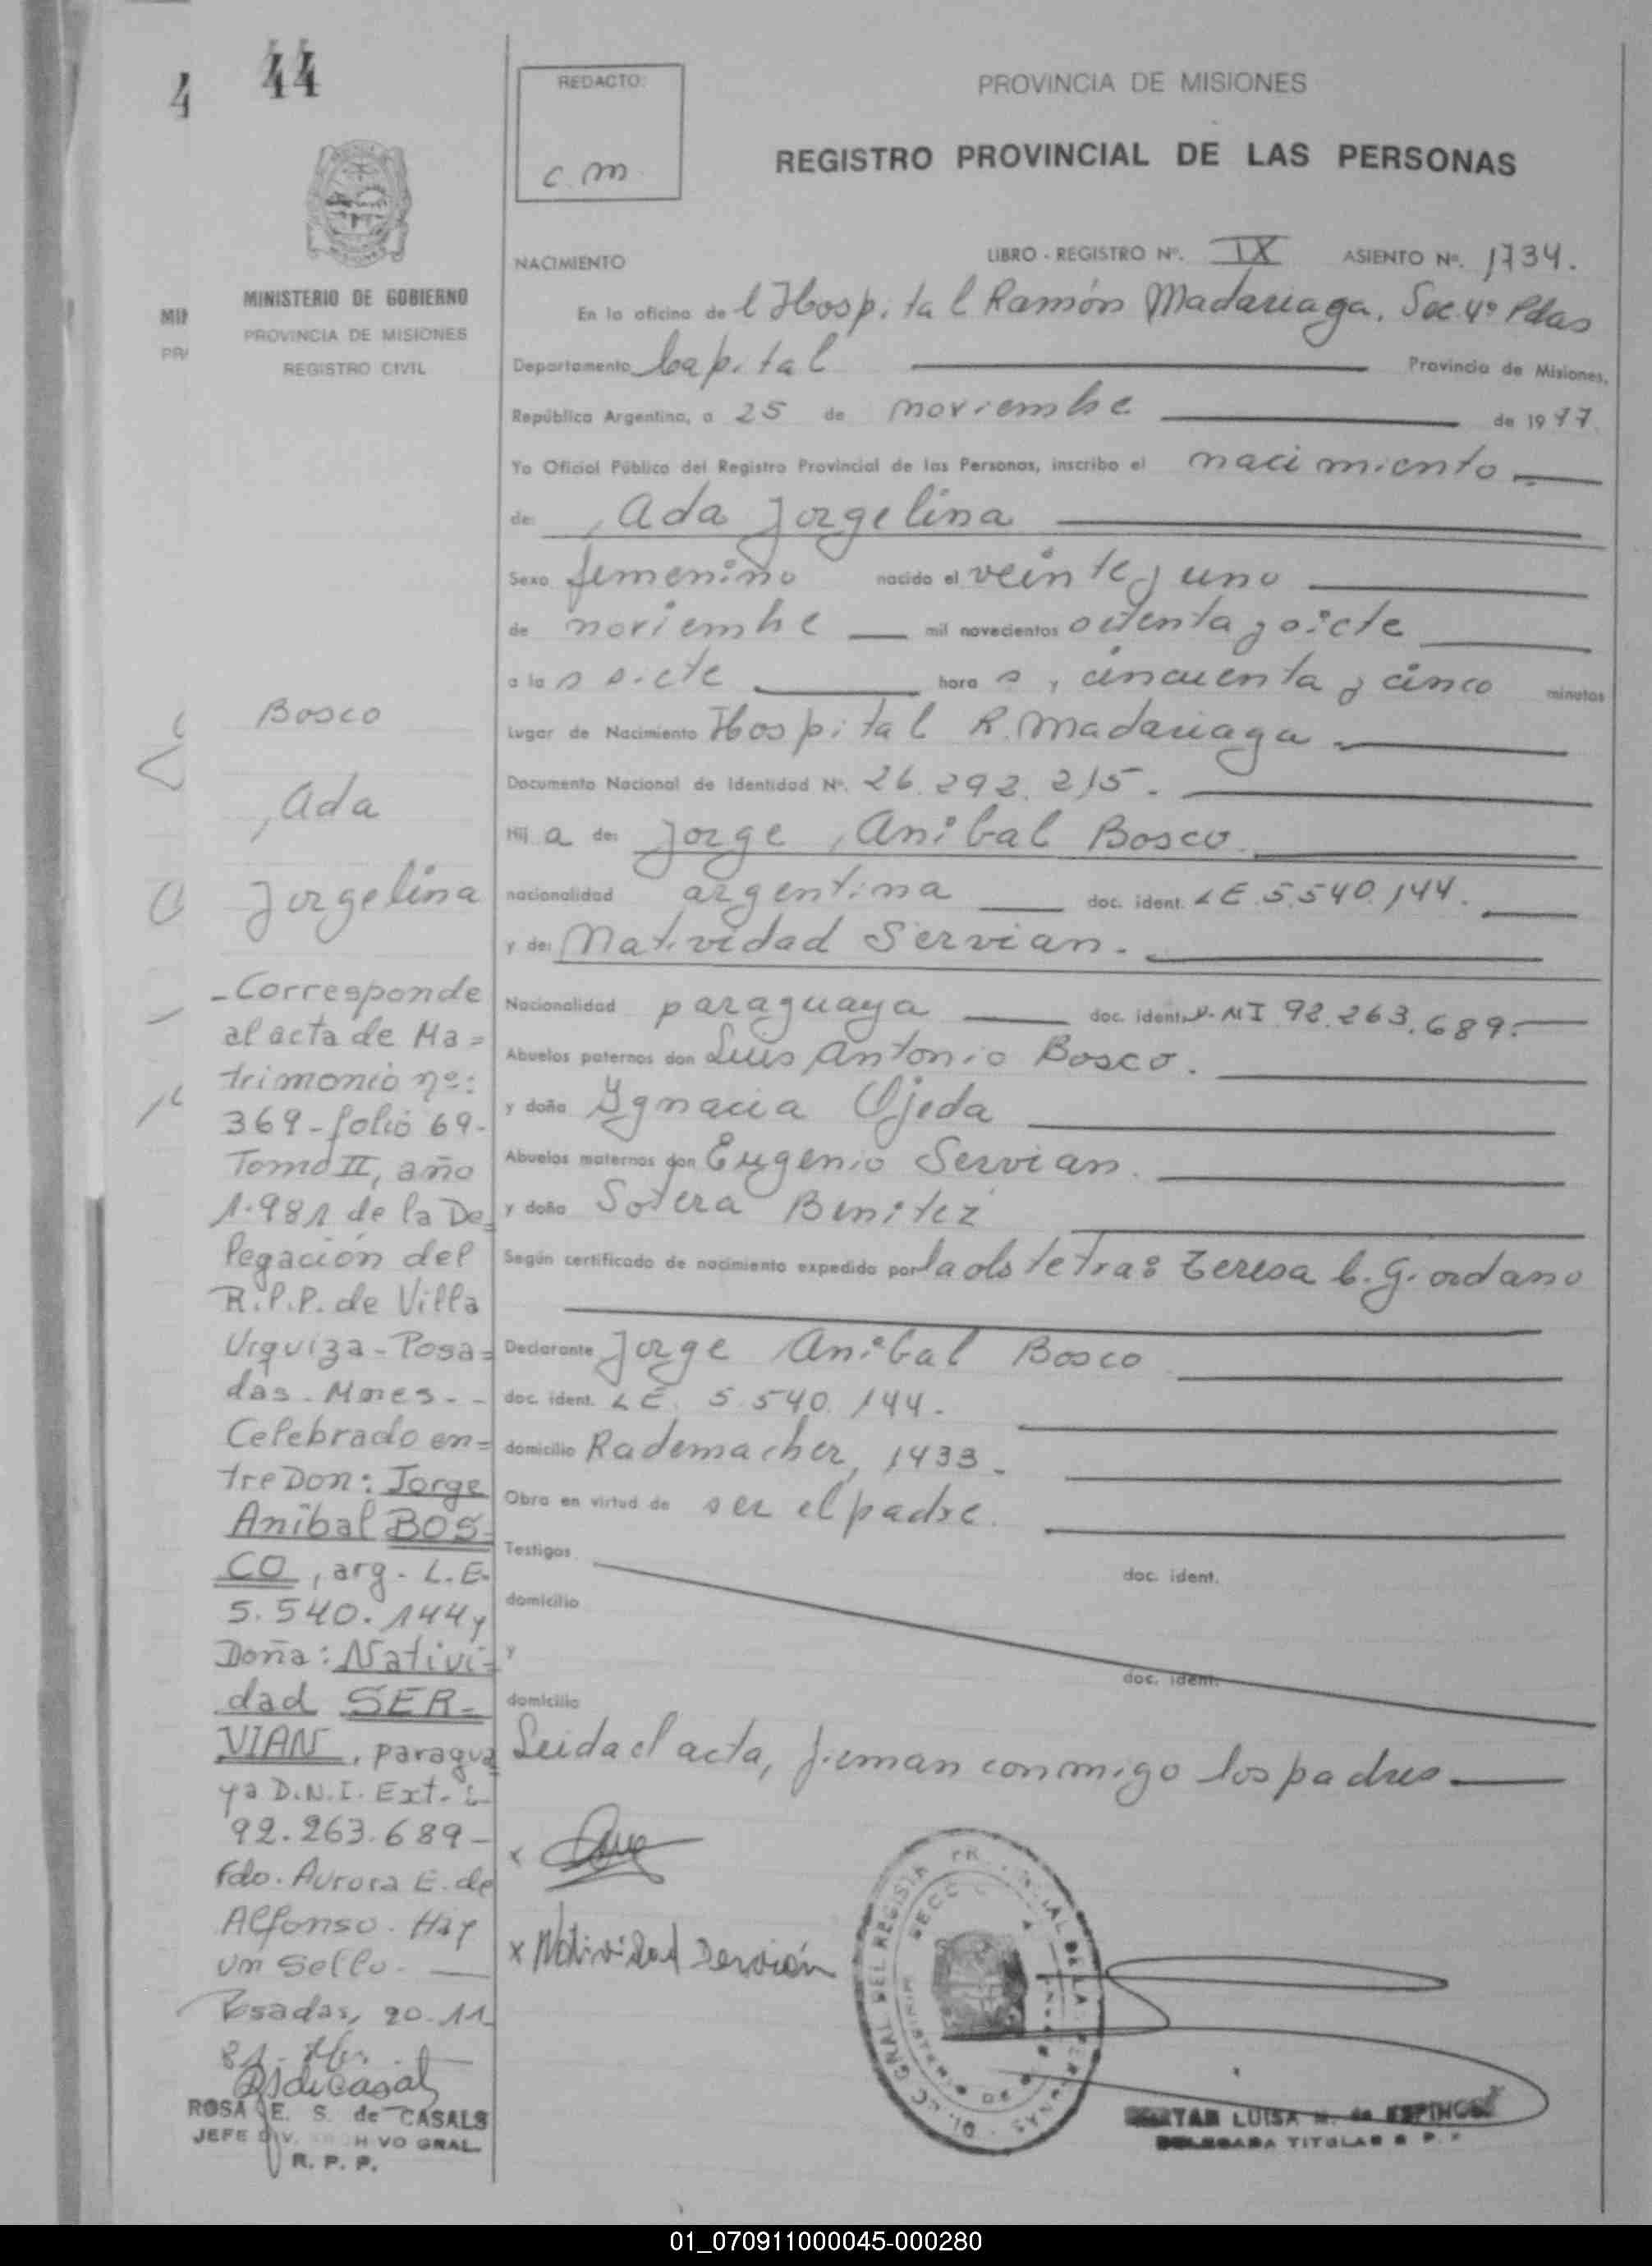 4
44
REDACTO:
c.m
PROVINCIA DE MISIONES
REGISTRO PROVINCIAL DE LAS PERSONAS
MINISTERIO DE GOBIERNO
PROVINCIA DE MISIONES
REGISTRO CIVIL
Bosco
, Ada
Jorgelina
- Corresponde
al acta de Ma=
trimonio nº:
369 - folio 69-
Tomo II, año
1.981 de la De=
legación del
R.P.P. de Villa
Urquiza - Posa=
das. Mnes. -
Celebrado en=
tre Don: Jorge
Anibal BOS=
CO, arg. L.E.
5.540.144 y
Doña: Nativi=
dad SER=
VIAN, paragua
ya D.N.I. Ext.
92.263.689-
Fdo. Aurora E. de
Alfonso. Hay
un Sello. —
Posadas, 20.11
81-
ROSA E. S. de CASALS
JEFE DIV. GRAL.
R. P. P.
NACIMIENTO LIBRO - REGISTRO Nº. IX ASIENTO Nº. 1734.
En la oficina de l Hospital Ramón Madariaga, Sec 4º Pdas
Departamento Capital Provincia de Misiones,
República Argentina, a 25 de noviembre de 1977
Yo Oficial Público del Registro Provincial de las Personas, inscribo el nacimiento
de: , Ada Jorgelina
Sexo femenino nacido el veinte y uno
de noviembre mil novecientos setenta y siete
a la s siete hora s y cincuenta y cinco minutos
Lugar de Nacimiento Hospital R. Madariaga
Documento Nacional de Identidad Nº. 26.292.215.
Hij a de: Jorge , Anibal Bosco
nacionalidad argentina doc. ident. LE 5.540.144.
y de: Natividad Servian.
Nacionalidad paraguaya doc. ident. NI 92.263.689.
Abuelos paternos don Luis Antonio Bosco.
y doña Ygnacia Ojeda
Abuelos maternos don Eugenio Servian.
y doña Sotera Benitez
Según certificado de nacimiento expedido por la obstetra: Teresa C. Giordano
Declarante Jorge Anibal Bosco
doc. ident. LE. 5.540.144.
domicilio Rademacher, 1433.
Obra en virtud de ser el padre.
Testigos doc. ident.
domicilio
y doc. ident.
domicilio
Leida el acta, firman conmigo los padres
x
x Natividad Servián
LUISA de ESPINOSA
DELEGADA TITULAR
01_070911000045-000280